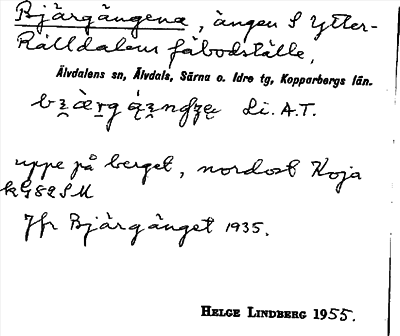 Bjärgängena, ängen S Ytter-
Rälldalens fäbodställe,
Älvdalens sn, Älvdals, Särna o. Idre tg, Kopparbergs län.
Li. A.T.
uppe på berget, nordost Koja
kG82SM
Jfr Bjärgänget 1935.
HELGE LINDBERG 1955.